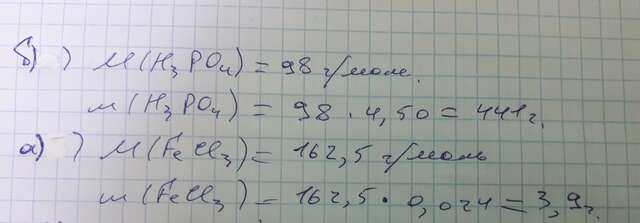 б) ) M(H₃PO₄) = 98 г/моль.
m(H₃PO₄) = 98 · 4,50 = 441 г.
а) ) M(FeCl₃) = 162,5 г/моль
m(FeCl₃) = 162,5 · 0,024 = 3,9 г.